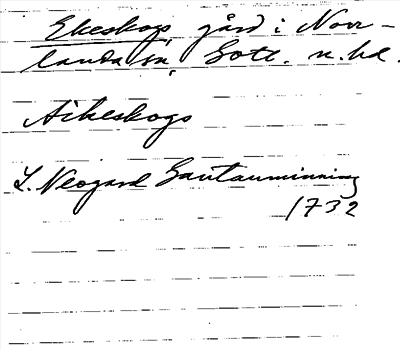 Ekeskogs gård i Norr-
landa sn, Gotl. n. hd.
Aikeskogs
L. Neogard Gautauminning
1732